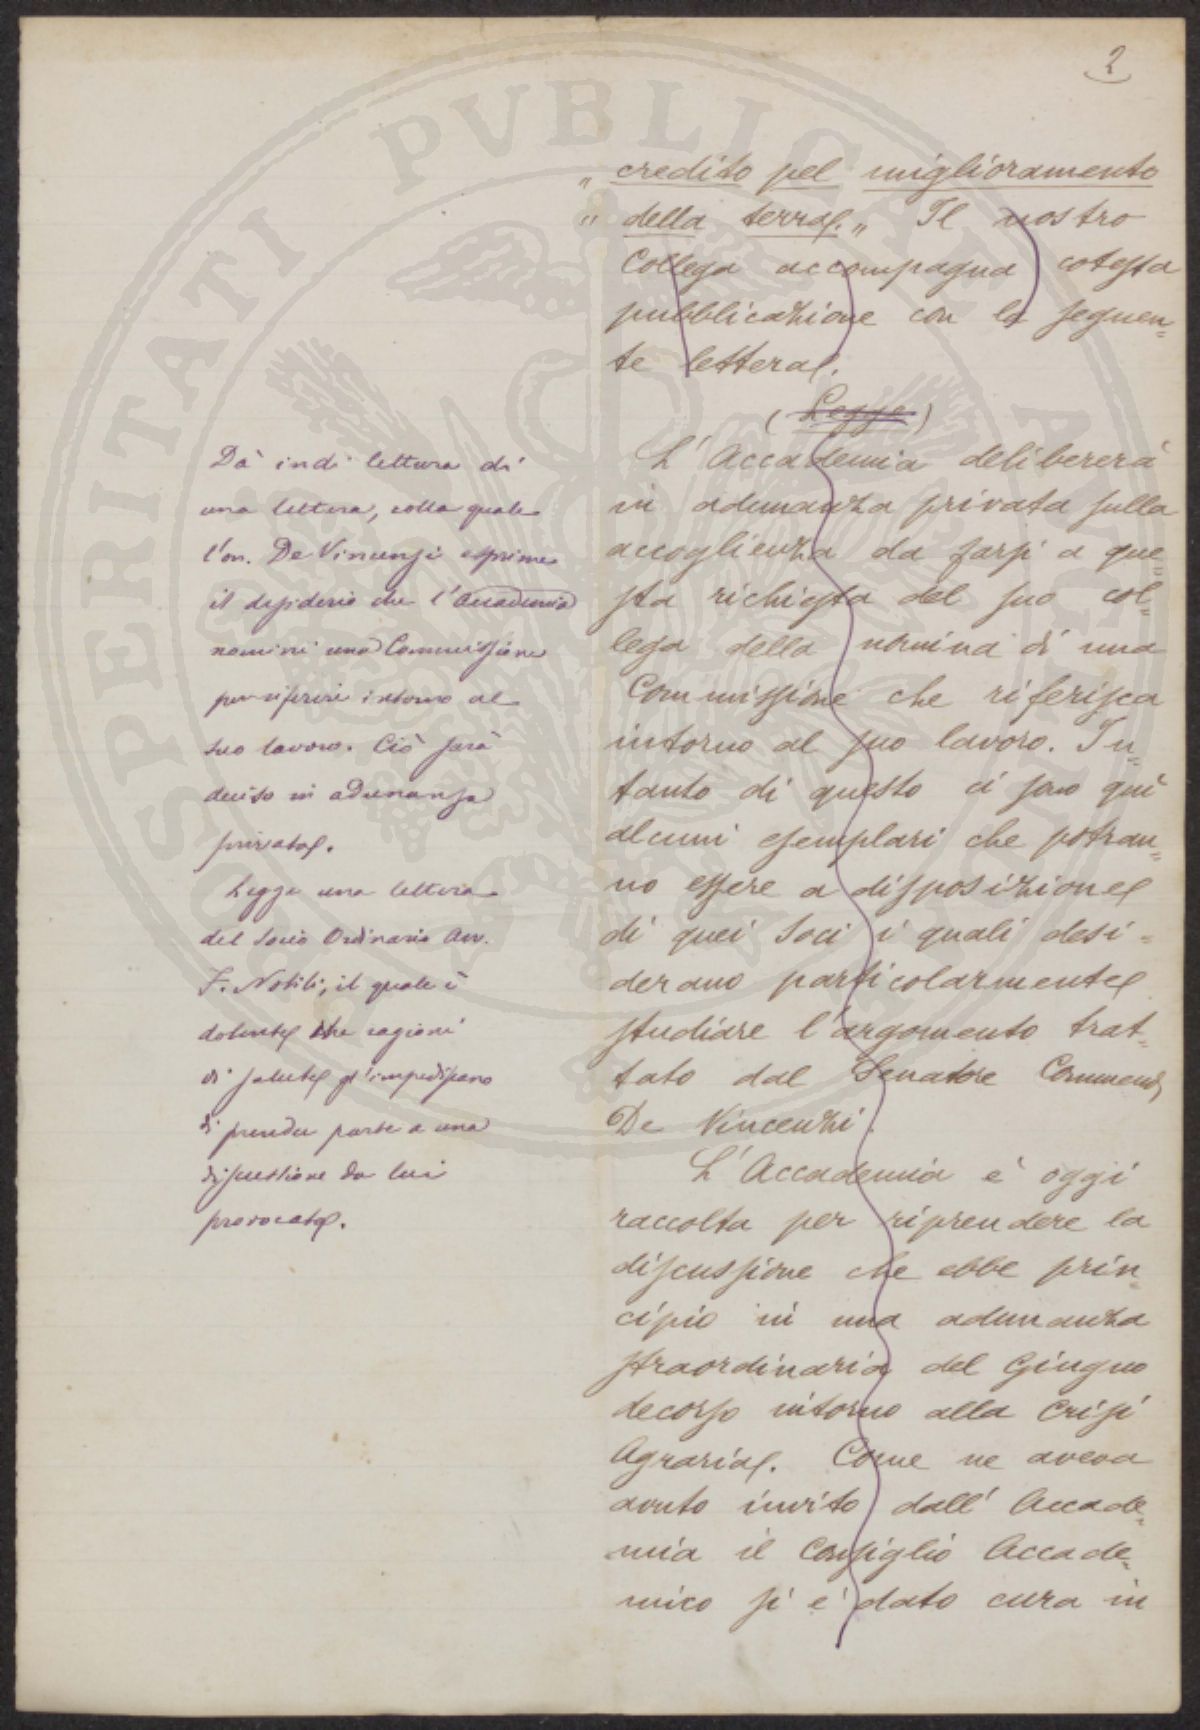 2
„ credito pel miglioramento
„ della terra. „ Il nostro
Collega accompagna cotesta
pubblicazione con la seguen=
te lettera.
(Legge)
L'Accademia delibererà
in adunanza privata sulla
accoglienza da farsi a que=
sta richiesta del suo col=
lega della nomina di una
Commissione che riferisca
intorno al suo lavoro. In=
tanto di questo ci sono qui
alcuni esemplari che potran=
no essere a disposizione
di quei Soci i quali desi=
derano particolarmente
studiare l'argomento trat=
tato dal Senatore Commend
De Vincenzi.
L'Accademia è oggi
raccolta per riprendere la
discussione che ebbe prin=
cipio in una adunanza
straordinaria del Giugno
decorso intorno alla Crisi
Agraria. Come ne aveva
avuto invito dall' Accade=
mia il Consiglio Accade=
mico si è dato cura in
Dà indi lettura di
una lettera, colla quale
l'on. De Vincenzi esprime
il desiderio che l'Accademia
nomini una Commissione
per riferire intorno al
suo lavoro. Ciò sarà
deciso in adunanza
privata.
Legge una lettera
del Socio Ordinario Avv.
F. Nobili, il quale è
dolente che ragioni
di salute gl'impediscano
di prender parte a una
discussione da lui
provocata.
SPERITATI PVBLICAE